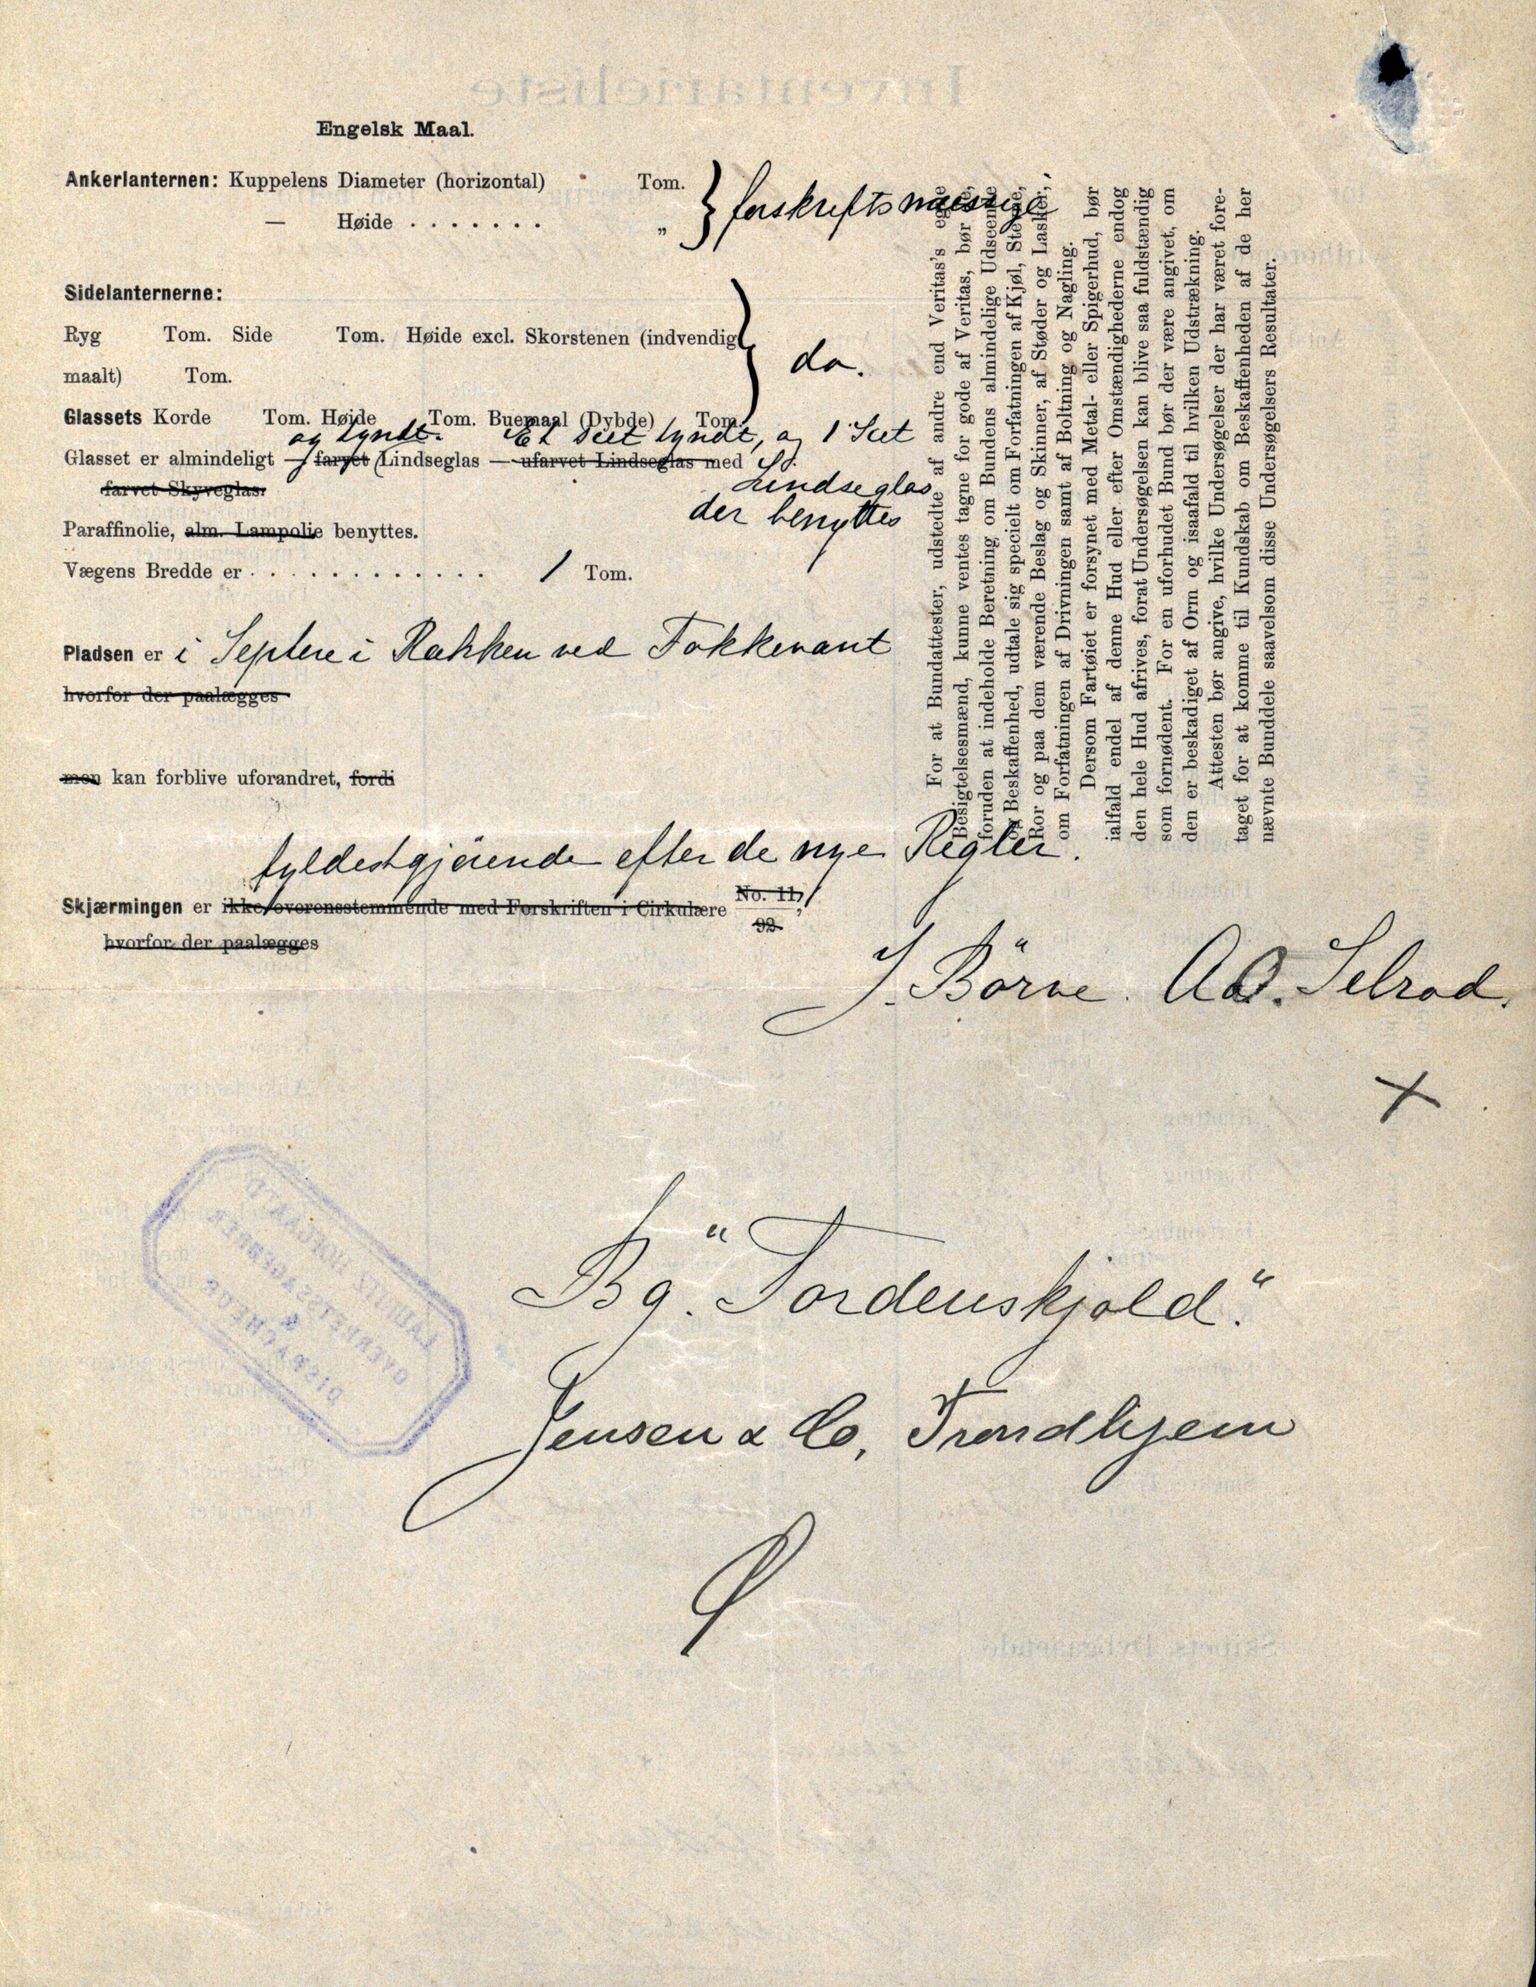 Engelsk Maal.
Ankerlanternen: Kuppelens Diameter (horizontal) Tom.
— Høide . . . . . . . „
} forskriftsmæssige
Sidelanternerne:
Ryg Tom. Side Tom. Høide excl. Skorstenen (indvendig
maalt) Tom.
} do.
Glassets Korde Tom. Høide Tom. Buemaal (Dybde) Tom.
og tyndt. Et Sæt tyndt, og 1 Sæt
Glasset er almindeligt — farvet (Lindseglas — ufarvet Lindseglas med
Lindseglas
farvet Skyveglas.
der benyttes
Paraffinolie, alm. Lampolie benyttes.
Vægens Bredde er . . . . . . . . . . . . . 1 Tom.
Pladsen er i Septere i Rækken ved Fokkevant
hvorfor der paalægges
men kan forblive uforandret, fordi
fyldestgjörende efter de nye Regler.
Skjærmingen er ikke overensstemmende med Forskriften i Cirkulære No. 11/92,
hvorfor der paalægges
For at Bundattester, udstedte af andre end Veritas's egne
Besigtelsesmænd, kunne ventes tagne for gode af Veritas, bør de,
foruden at indeholde Beretning om Bundens almindelige Udseende
og Beskaffenhed, udtale sig specielt om Forfatningen af Kjøl, Stevne,
Ror og paa dem værende Beslag og Skinner, af Støder og Lasker,
om Forfatningen af Drivningen samt af Boltning og Nagling.
Dersom Fartøiet er forsynet med Metal- eller Spigerhud, bør
ialfald endel af denne Hud eller efter Omstændighederne endog
den hele Hud afrives, forat Undersøgelsen kan blive saa fuldstændig
som fornødent. For en uforhudet Bund bør der være angivet, om
den er beskadiget af Orm og isaafald til hvilken Udstrækning.
Attesten bør angive, hvilke Undersøgelser der har været fore-
taget for at komme til Kundskab om Beskaffenheden af de her
nævnte Bunddele saavelsom disse Undersøgelsers Resultater.
J. Börve. AO. Selrod.
Bg. "Tordenskjold."
Jensen & Co, Trondhjem
LAURITZ HOFGAARD
OVERRETSSAGFØRER
&
DISPACHEUR
Inventarieliste